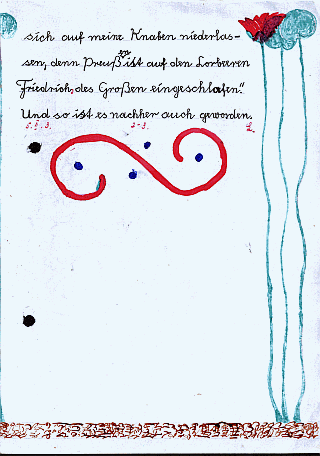 sich auf meine Knaben niederlas-
sen, denn Preußen ist auf den Lorbeeren
Friedrich, des Großen eingeschlafen."
Und so ist es nachher auch geworden.
2-3.